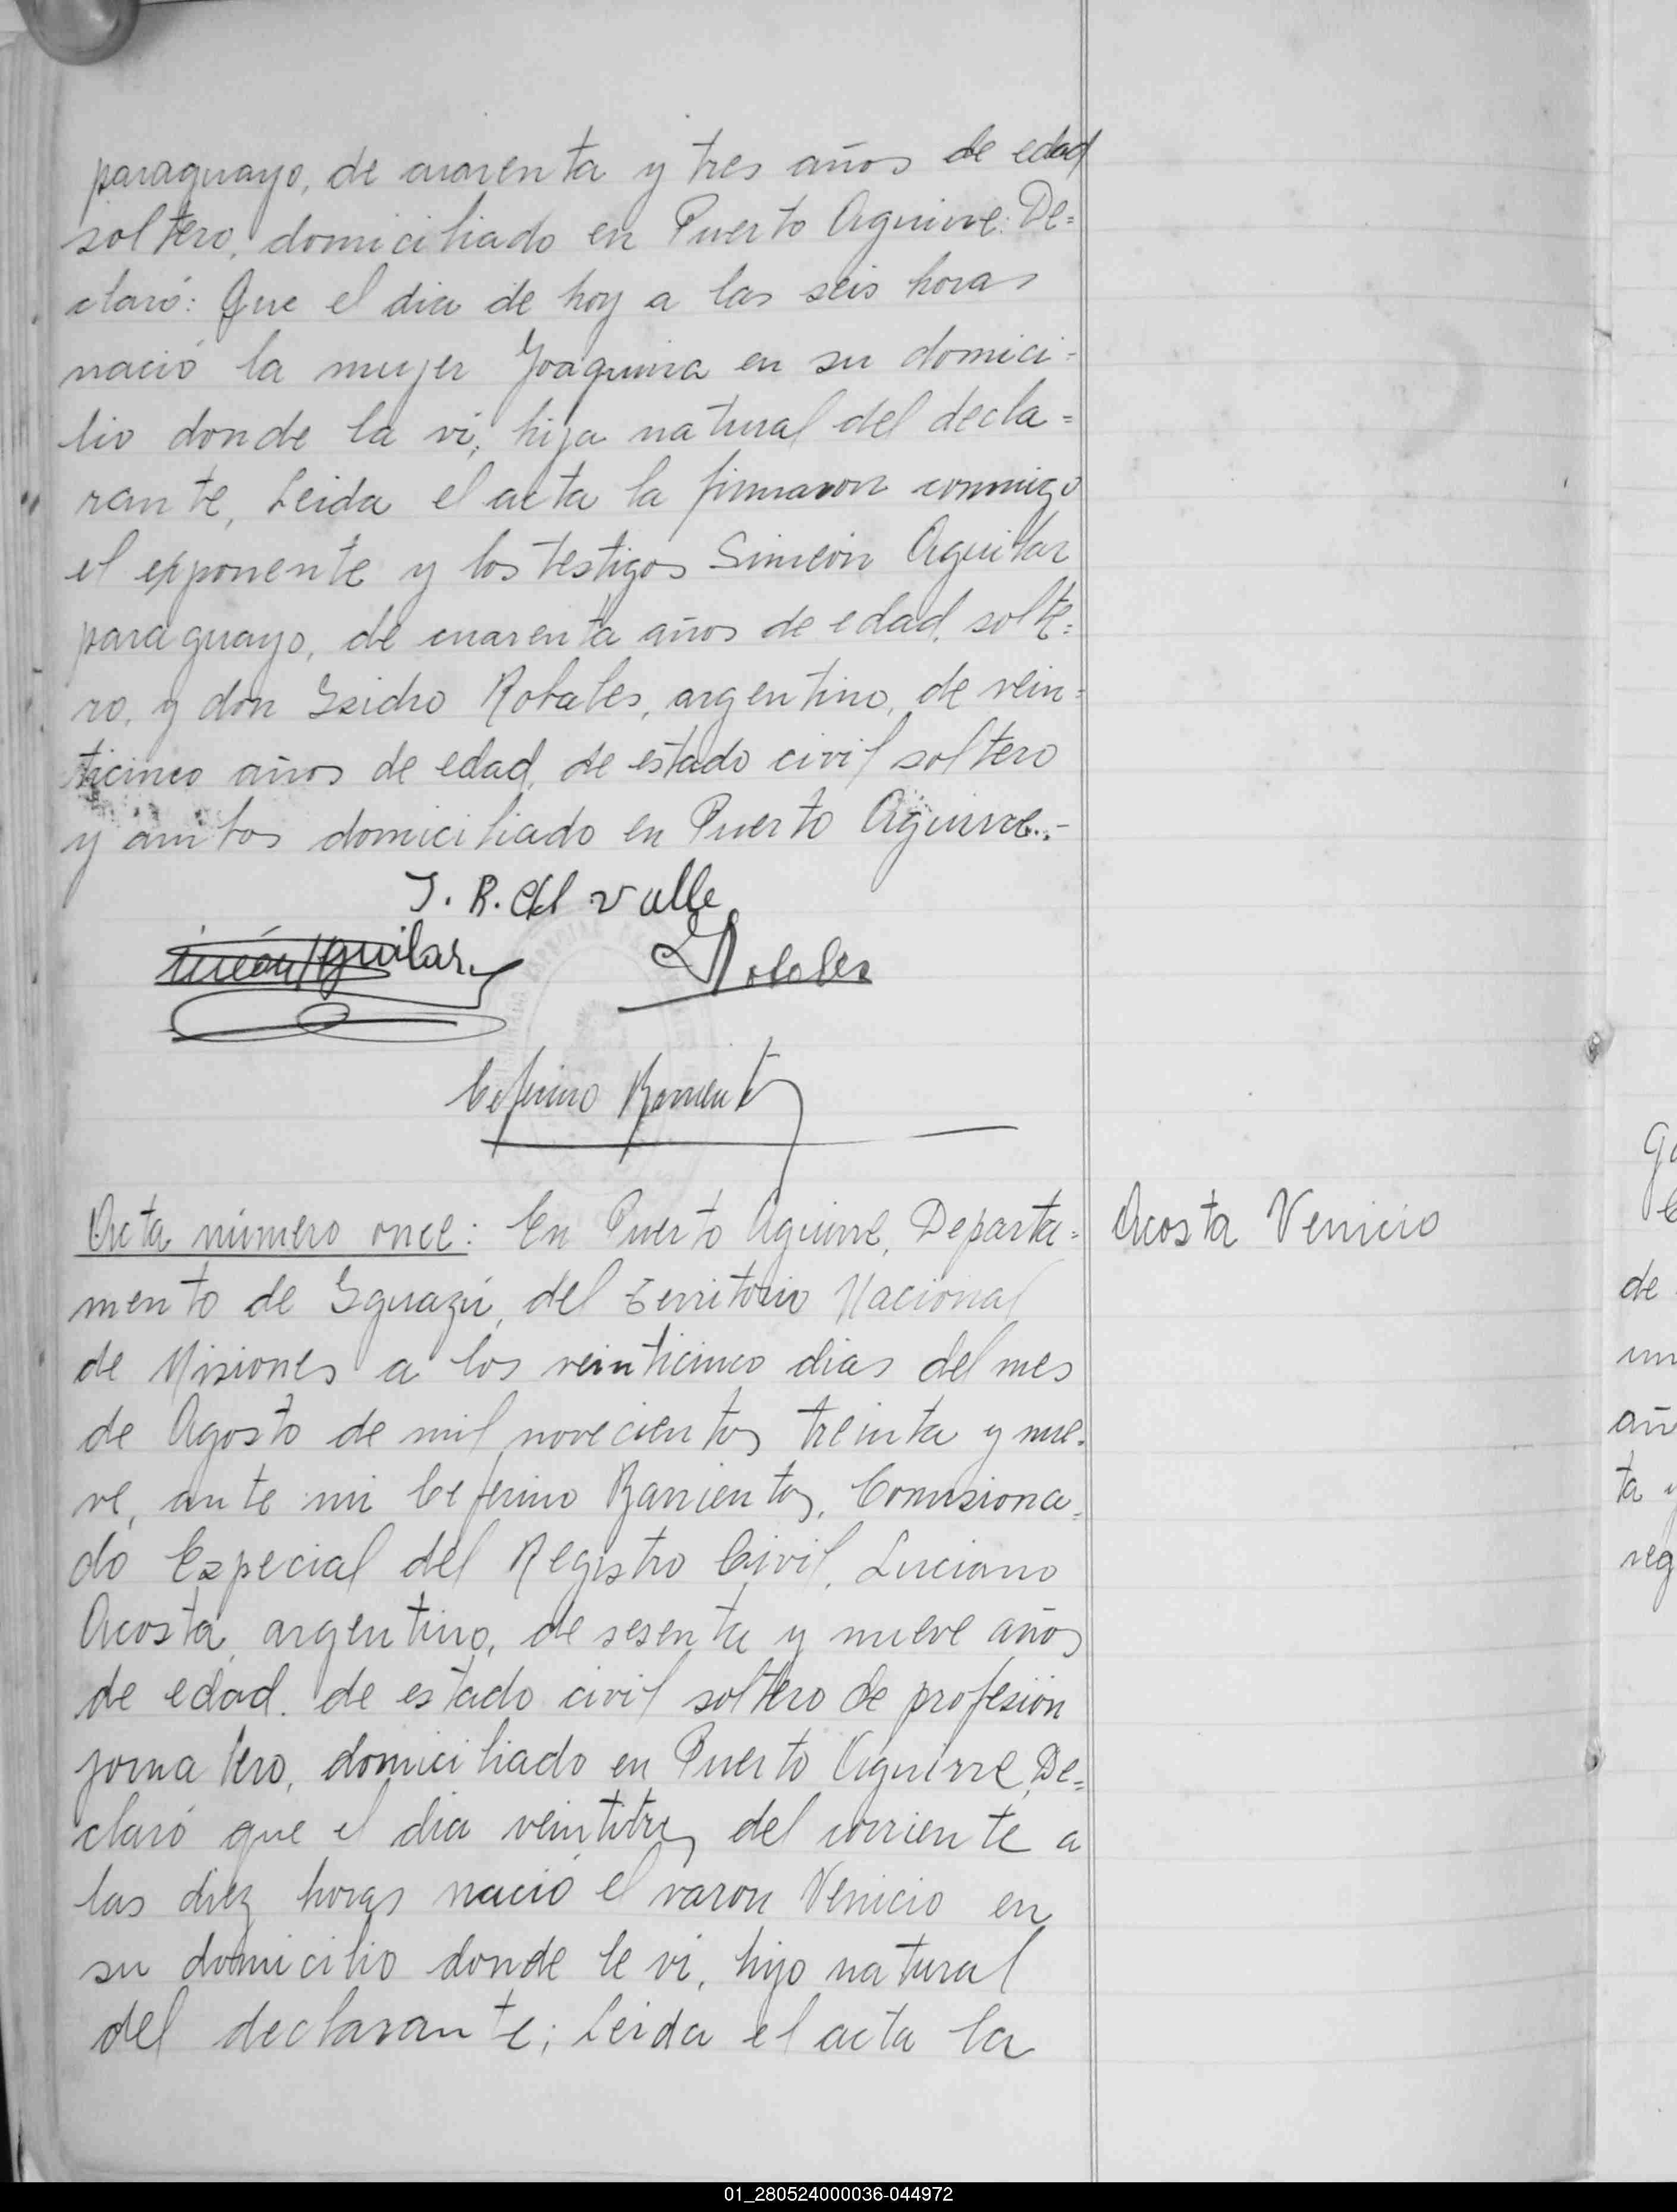 paraguayo, de cuarenta y tres años de edad
soltero, domiciliado en Puerto Aguirre: De=
claró: Que el dia de hoy a las seis horas
nació la mujer Joaquina en su domici=
lio donde la vi, hija natural del decla=
rante, Leida el acta la firmaron conmigo
el exponente y los testigos Simeón Aguilar
paraguayo, de cuarenta años de edad, solte=
ro, y don Isidro Robales, argentino, de vein=
ticinco años de edad, de estado civil soltero
y ambos domiciliado en Puerto Aguirre.-
J. R. del Valle
Simeón Aguilar
I Robales
Ceferino Barrientos
Acta número once: En Puerto Aguirre, Departa=
Acosta Venicio
mento de Iguazú, del Territorio Nacional
de Misiones a los veinticinco dias del mes
de Agosto de mil novecientos treinta y nue=
ve, ante mi Ceferino Barrientos, Comisiona=
do Especial del Registro Civil, Luciano
Acosta, argentino, de sesenta y nueve años
de edad. de estado civil soltero de profesión
jornalero, domiciliado en Puerto Aguirre, De=
claró que el dia veintitres del corriente a
las diez horas nació el varon Venicio en
su domicilio donde le vi, hijo natural
del declarante; Leida el acta la
de
ta
reg
01_280524000036-044972